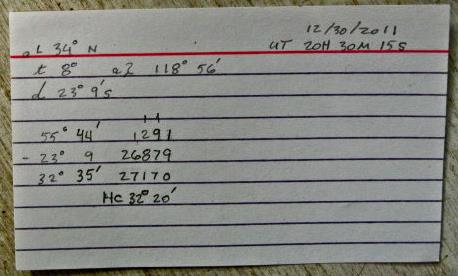 12/30/2011
aL 34° N UT 20H 30M 15S
t 8° aλ 118° 56'
d 23° 9's
55° 44' 1291
- 23° 9 26879
32° 35' 27170
Hc 32° 20'